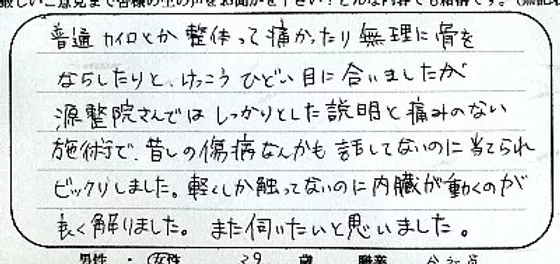 厳しいご意見まで皆様の生の声をお聞かせ下さい！どんな内容でも結構です。
普通カイロとか整体って痛かったり無理に骨を
ならしたりと、けっこうひどい目に合いましたが
源整院さんではしっかりとした説明と痛みのない
施術で、昔しの傷病なんかも話してないのに当てられ
ビックリしました。軽くしか触ってないのに内臓が動くのが
良く解りました。また伺いたいと思いました。
男性・女性 39 歳 職業 会社員